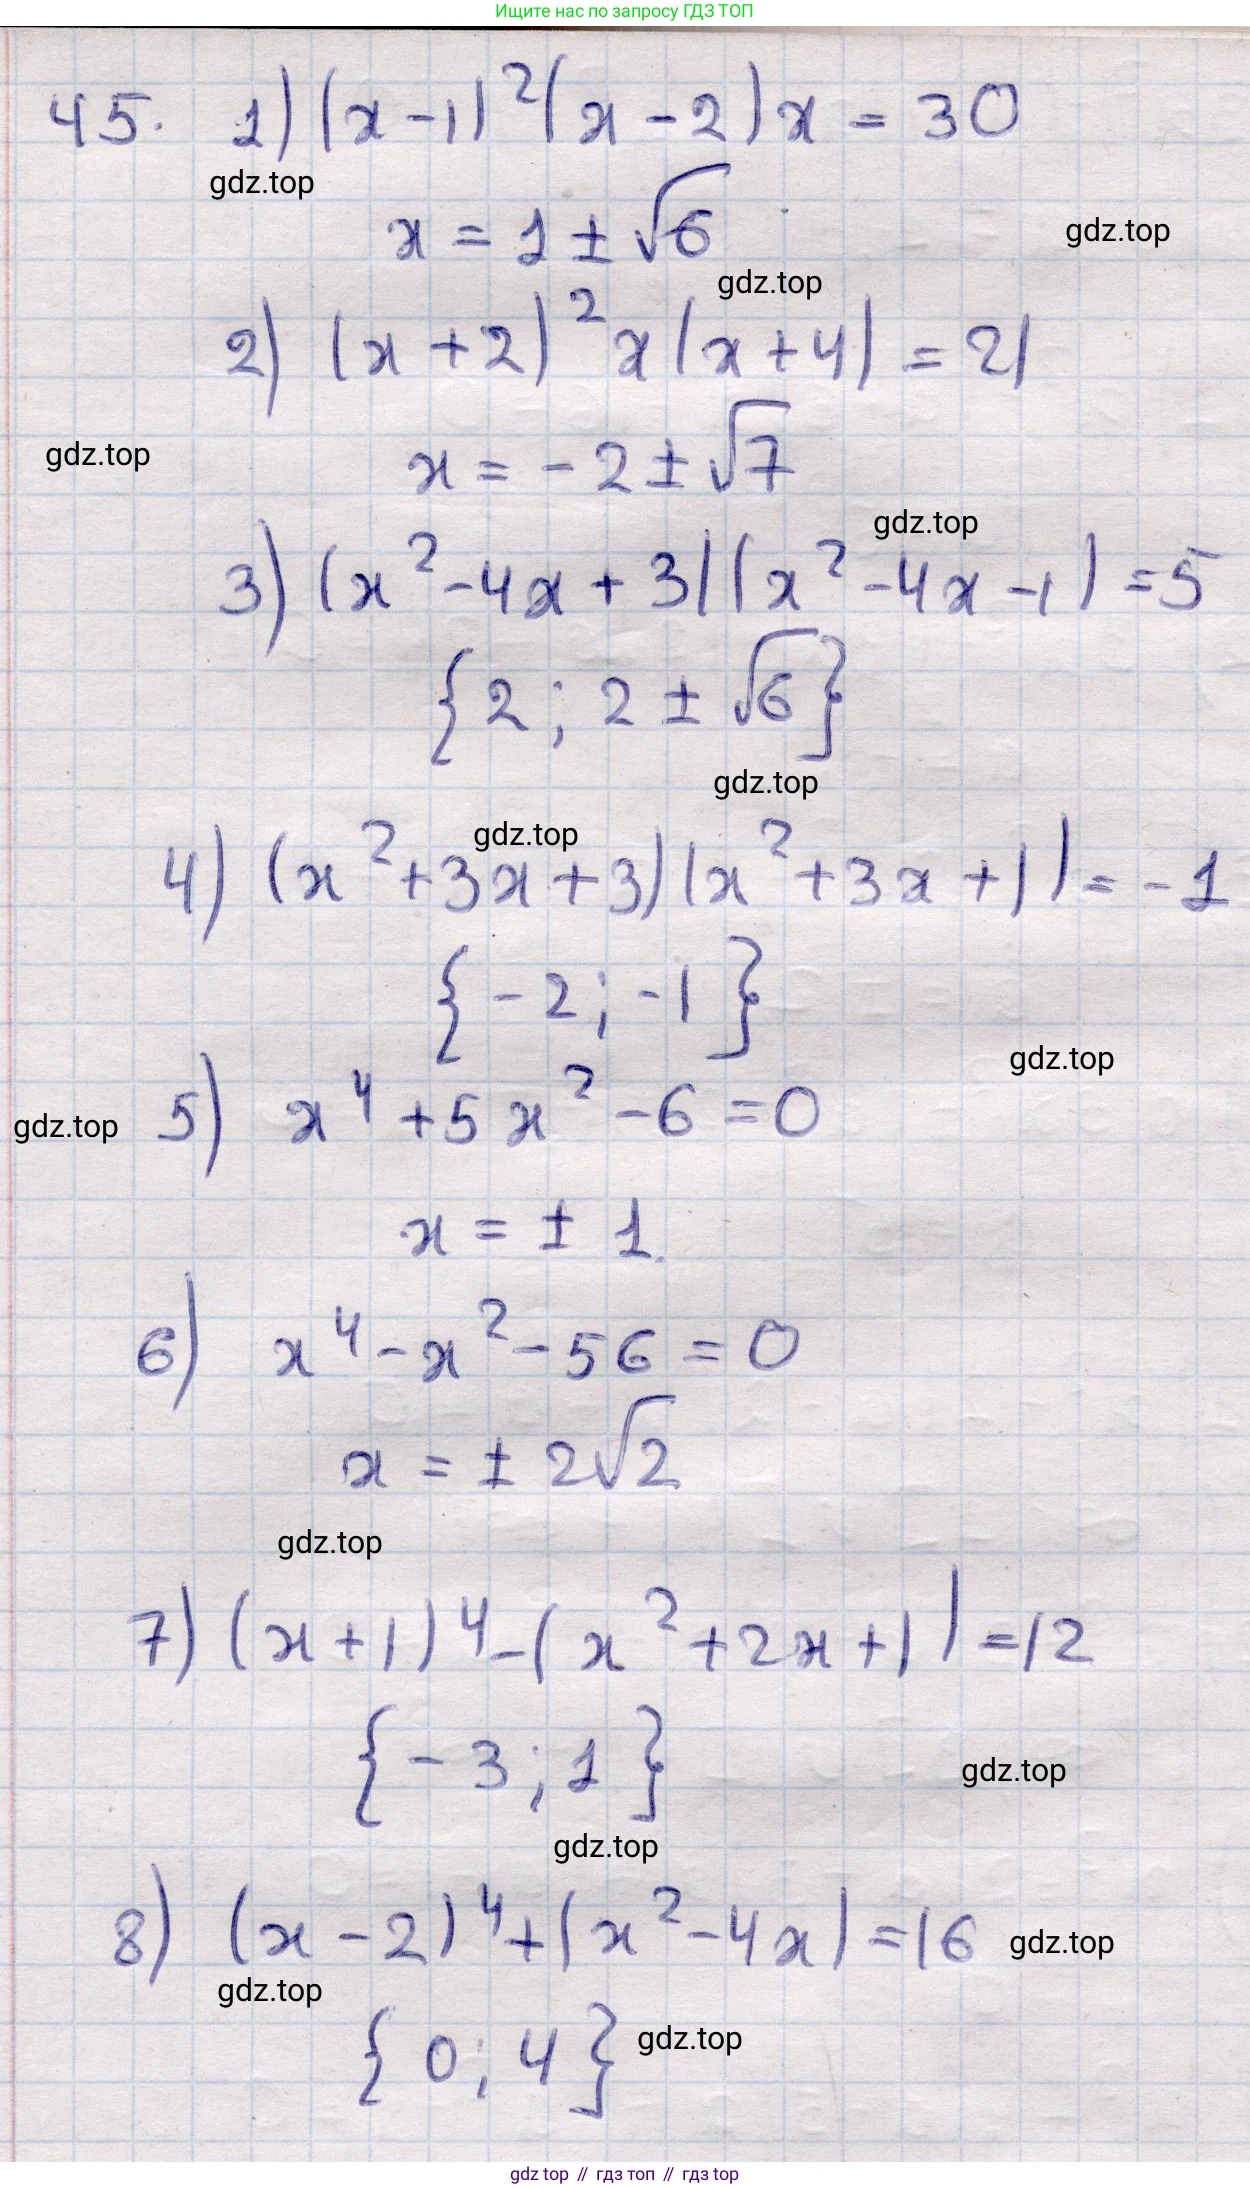 Ищите нас по запросу ГДЗ ТОП
45. 1) (x-1)²(x-2)x = 30
gdz.top
x = 1 ± √6
gdz.top
gdz.top
2) (x+2)² x(x+4) = 21
gdz.top
x = -2 ± √7
gdz.top
3) (x²-4x+3)(x²-4x-1) = 5
{2; 2 ± √6}
gdz.top
gdz.top
4) (x²+3x+3)(x²+3x+1) = -1
{-2; -1}
gdz.top
gdz.top
5) x⁴+5x²-6=0
x = ± 1.
6) x⁴-x²-56=0
x = ± 2√2
gdz.top
7) (x+1)⁴-(x²+2x+1)=12
{-3; 1}
gdz.top
gdz.top
8) (x-2)⁴+(x²-4x)=16
gdz.top
gdz.top
{0; 4}
gdz.top
gdz top // гдз топ // гдз top